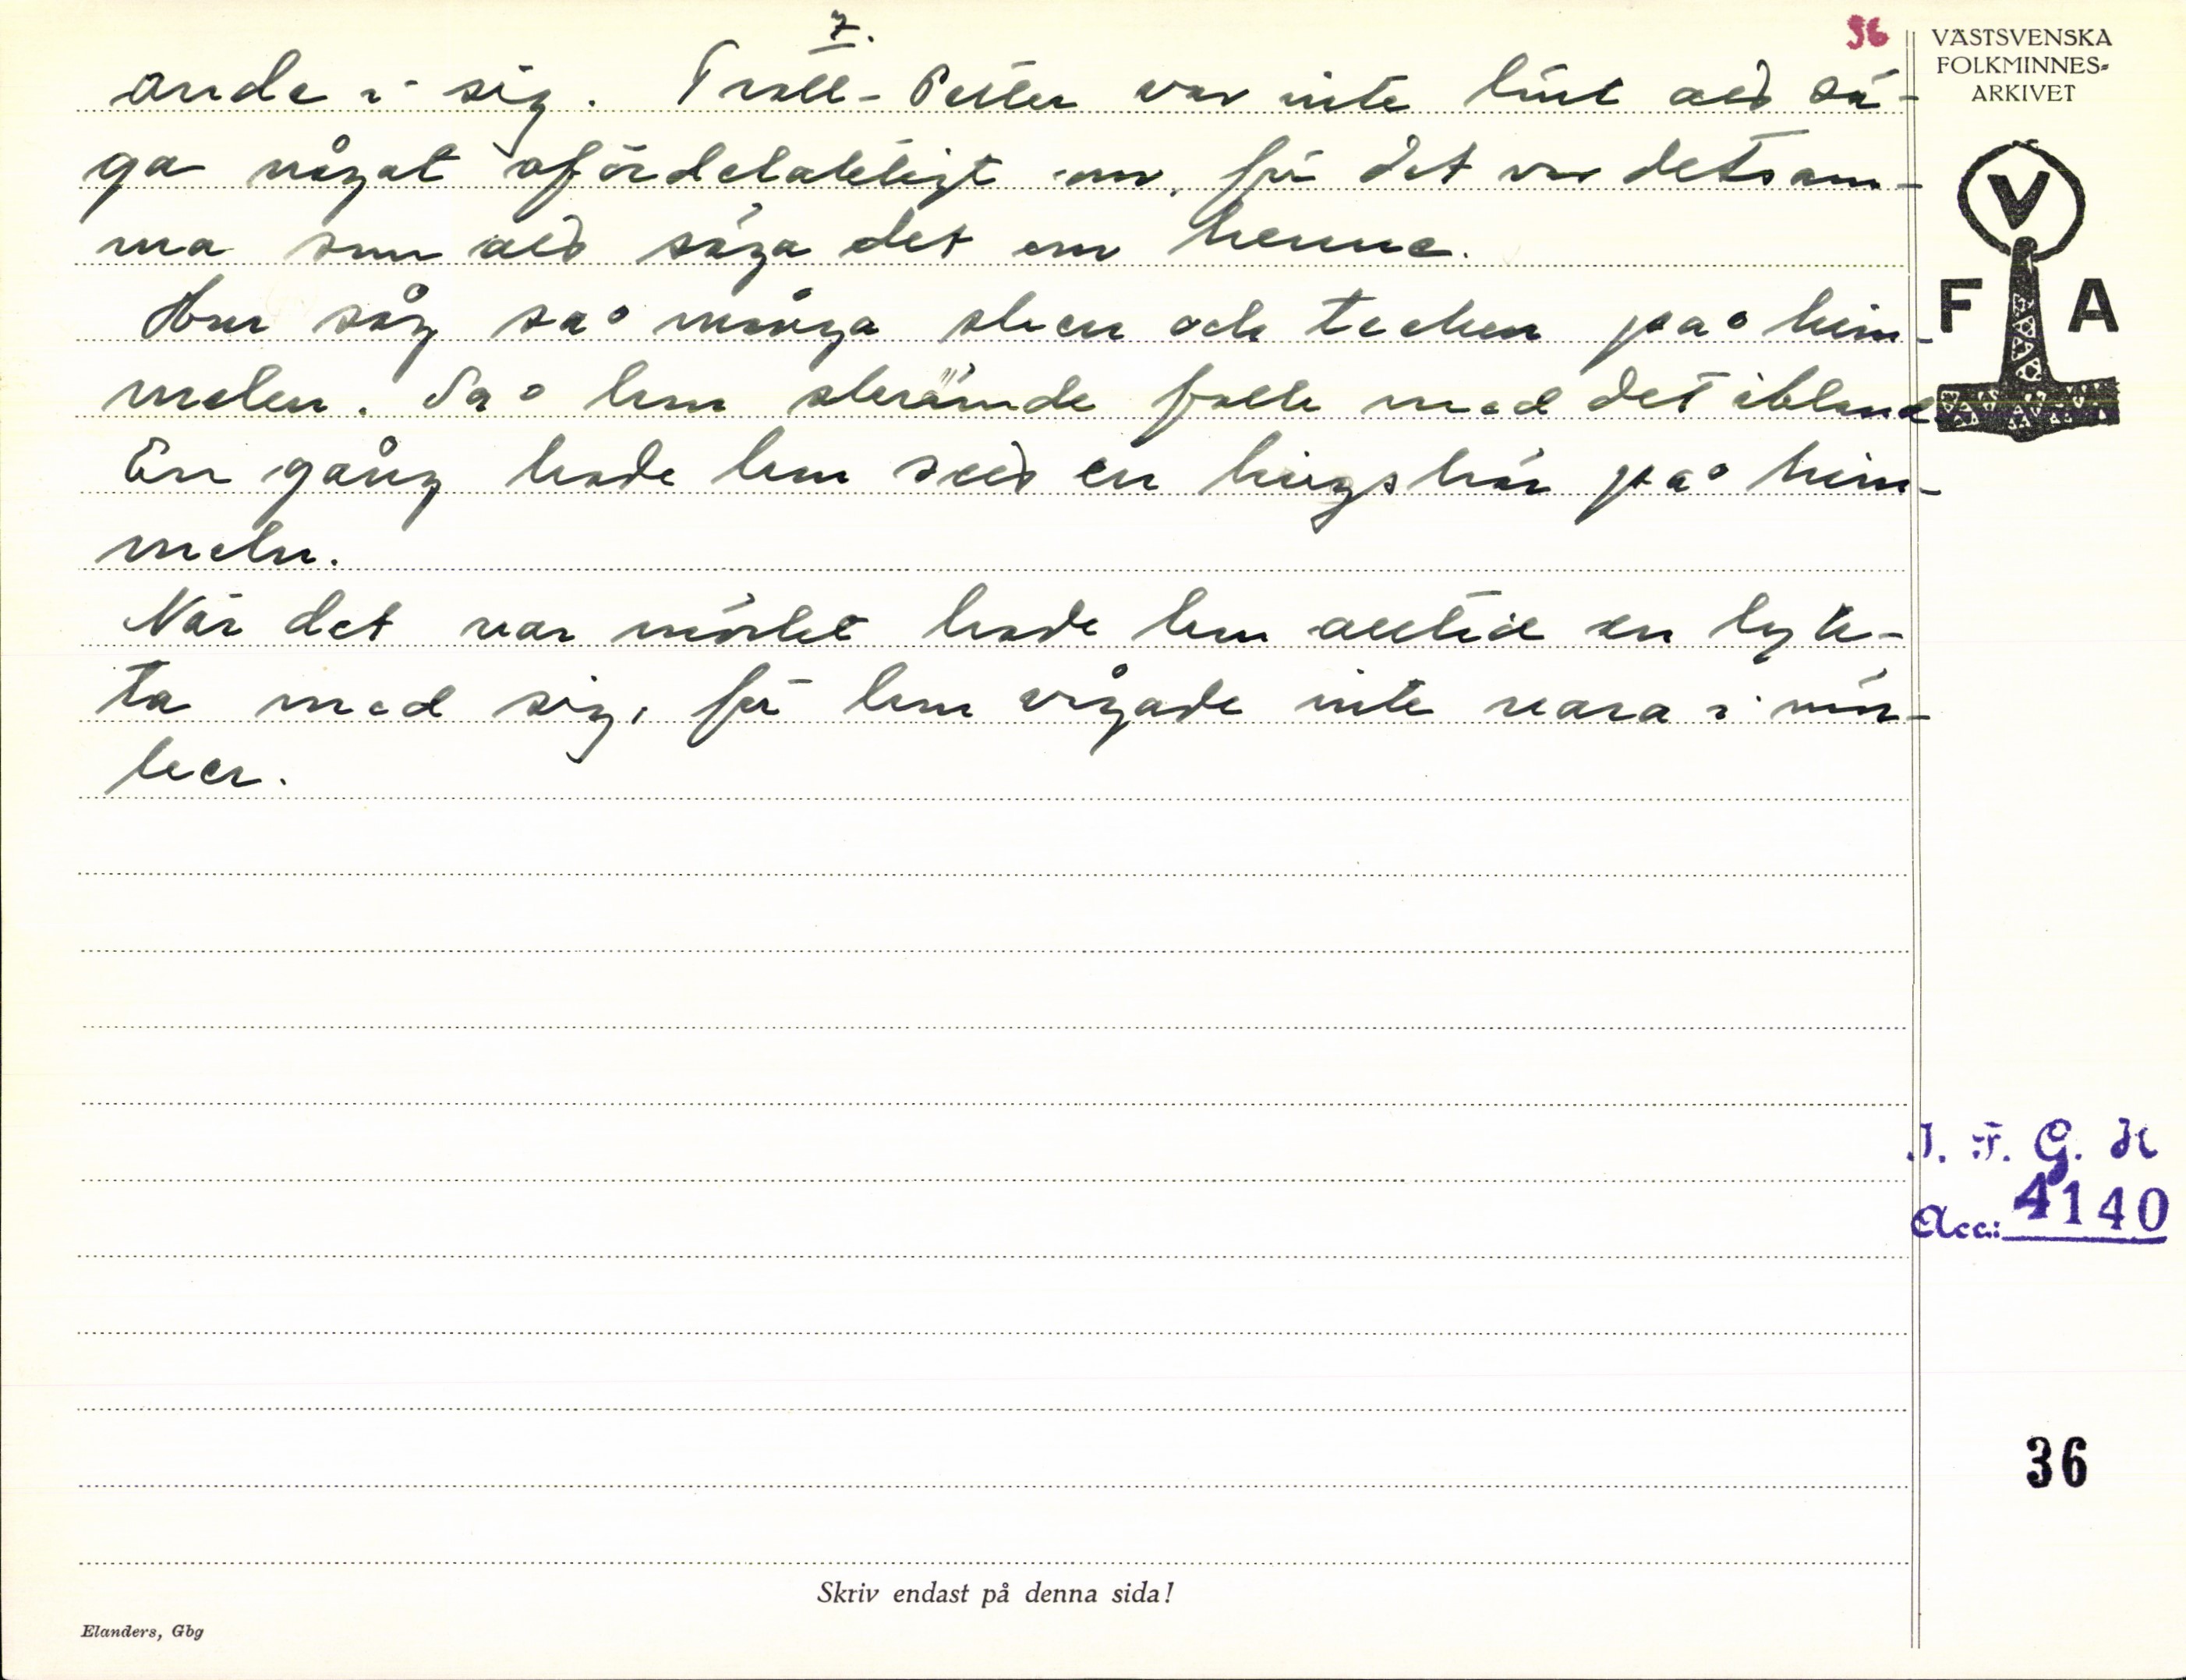 7.
36
ande i sig. Troll-Petter var inte lönt att sä-
ga något ofördelaktigt om, för det var detsam-
ma som att säga det om henne.
Hon såg så många sken och tecken på him-
melen. Så hon skrämde folk med det ibland
En gång hade hon sett en krigshär på him-
meln.
När det var mörkt hade hon alltid en lyk-
ta med sig, för hon vågade inte vara i mör-
ker.
VÄSTSVENSKA
FOLKMINNES-
ARKIVET
V
F A
I. F. G. H
Acc: 4140
36
Skriv endast på denna sida!
Elanders, Gbg